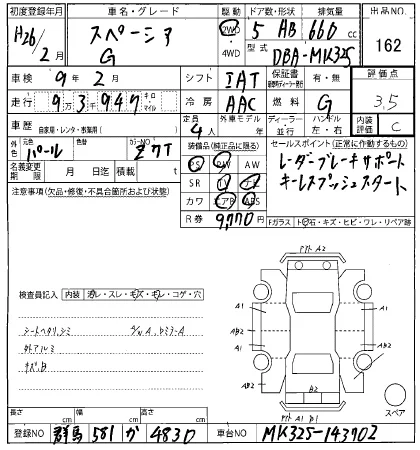 初度登録年月 車名・グレード 駆動 ドア数・形状 排気量 出品NO.
H26/2月 スペーシア G 2WD 4WD 5 AB 660 cc 162
型式 DBA-MK32S
車検 9年2月 シフト IAT 保証書 有・無 評価点
走行 9万3千947 キロ・マイル 冷房 AAC 燃料 G 3.5
車歴 自家用・レンタ・事業用( ) 定員 4人 外車モデル 年 ディーラー 並行 ハンドル 左・右 内装評価 C
外色 元色 パール 色替 カラーNO Z7T
装備品(純正品に限る) セールスポイント(正常に作動するもの)
PS PW AW レーダーブレーキサポート
名義変更期限 月 日迄 積載 t SR TV ナビ キーレスプッシュスタート
注意事項(欠品・修復・不具合箇所および状態) カワ エアB ABS
R券 9,770円 Fガラス トビ石・キズ・ヒビ・ワレ・リペア跡
検査員記入 内装 汚レ・スレ・キズ・モレ・コゲ・穴
シートヘタリ シミ
外アルミ
キズ・凹
A2
A1 A1
AB2 AB2
A1
スペア
長さ cm 幅 cm 高さ cm
登録NO 群馬 581 か 4830 車台NO MK32S-143902